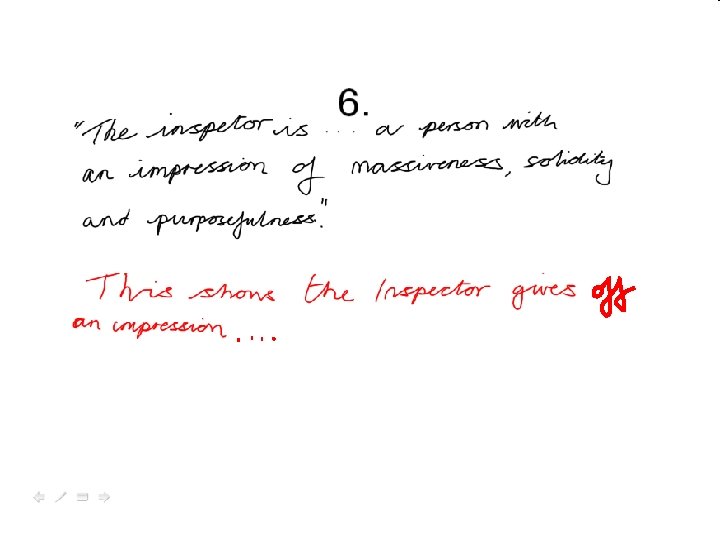 6.
"The inspetor is .... a person with
an impression of massiveness, solidity
and purposefulness."
This shows the Inspector gives off
an impression ....